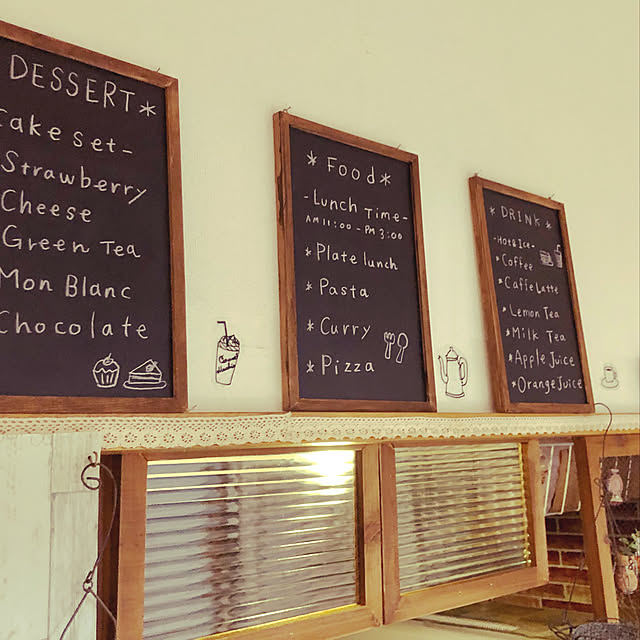 DESSERT*
Cake set-
Strawberry
Cheese
Green Tea
Mon Blanc
Chocolate
* Food *
- Lunch Time -
AM 11:00 - PM 3:00
* Plate lunch
* Pasta
* Curry
* Pizza
* DRINK *
- Hot & Ice -
* Coffee
* Caffe Latte
* Lemon Tea
* Milk Tea
* Apple Juice
* Orange Juice